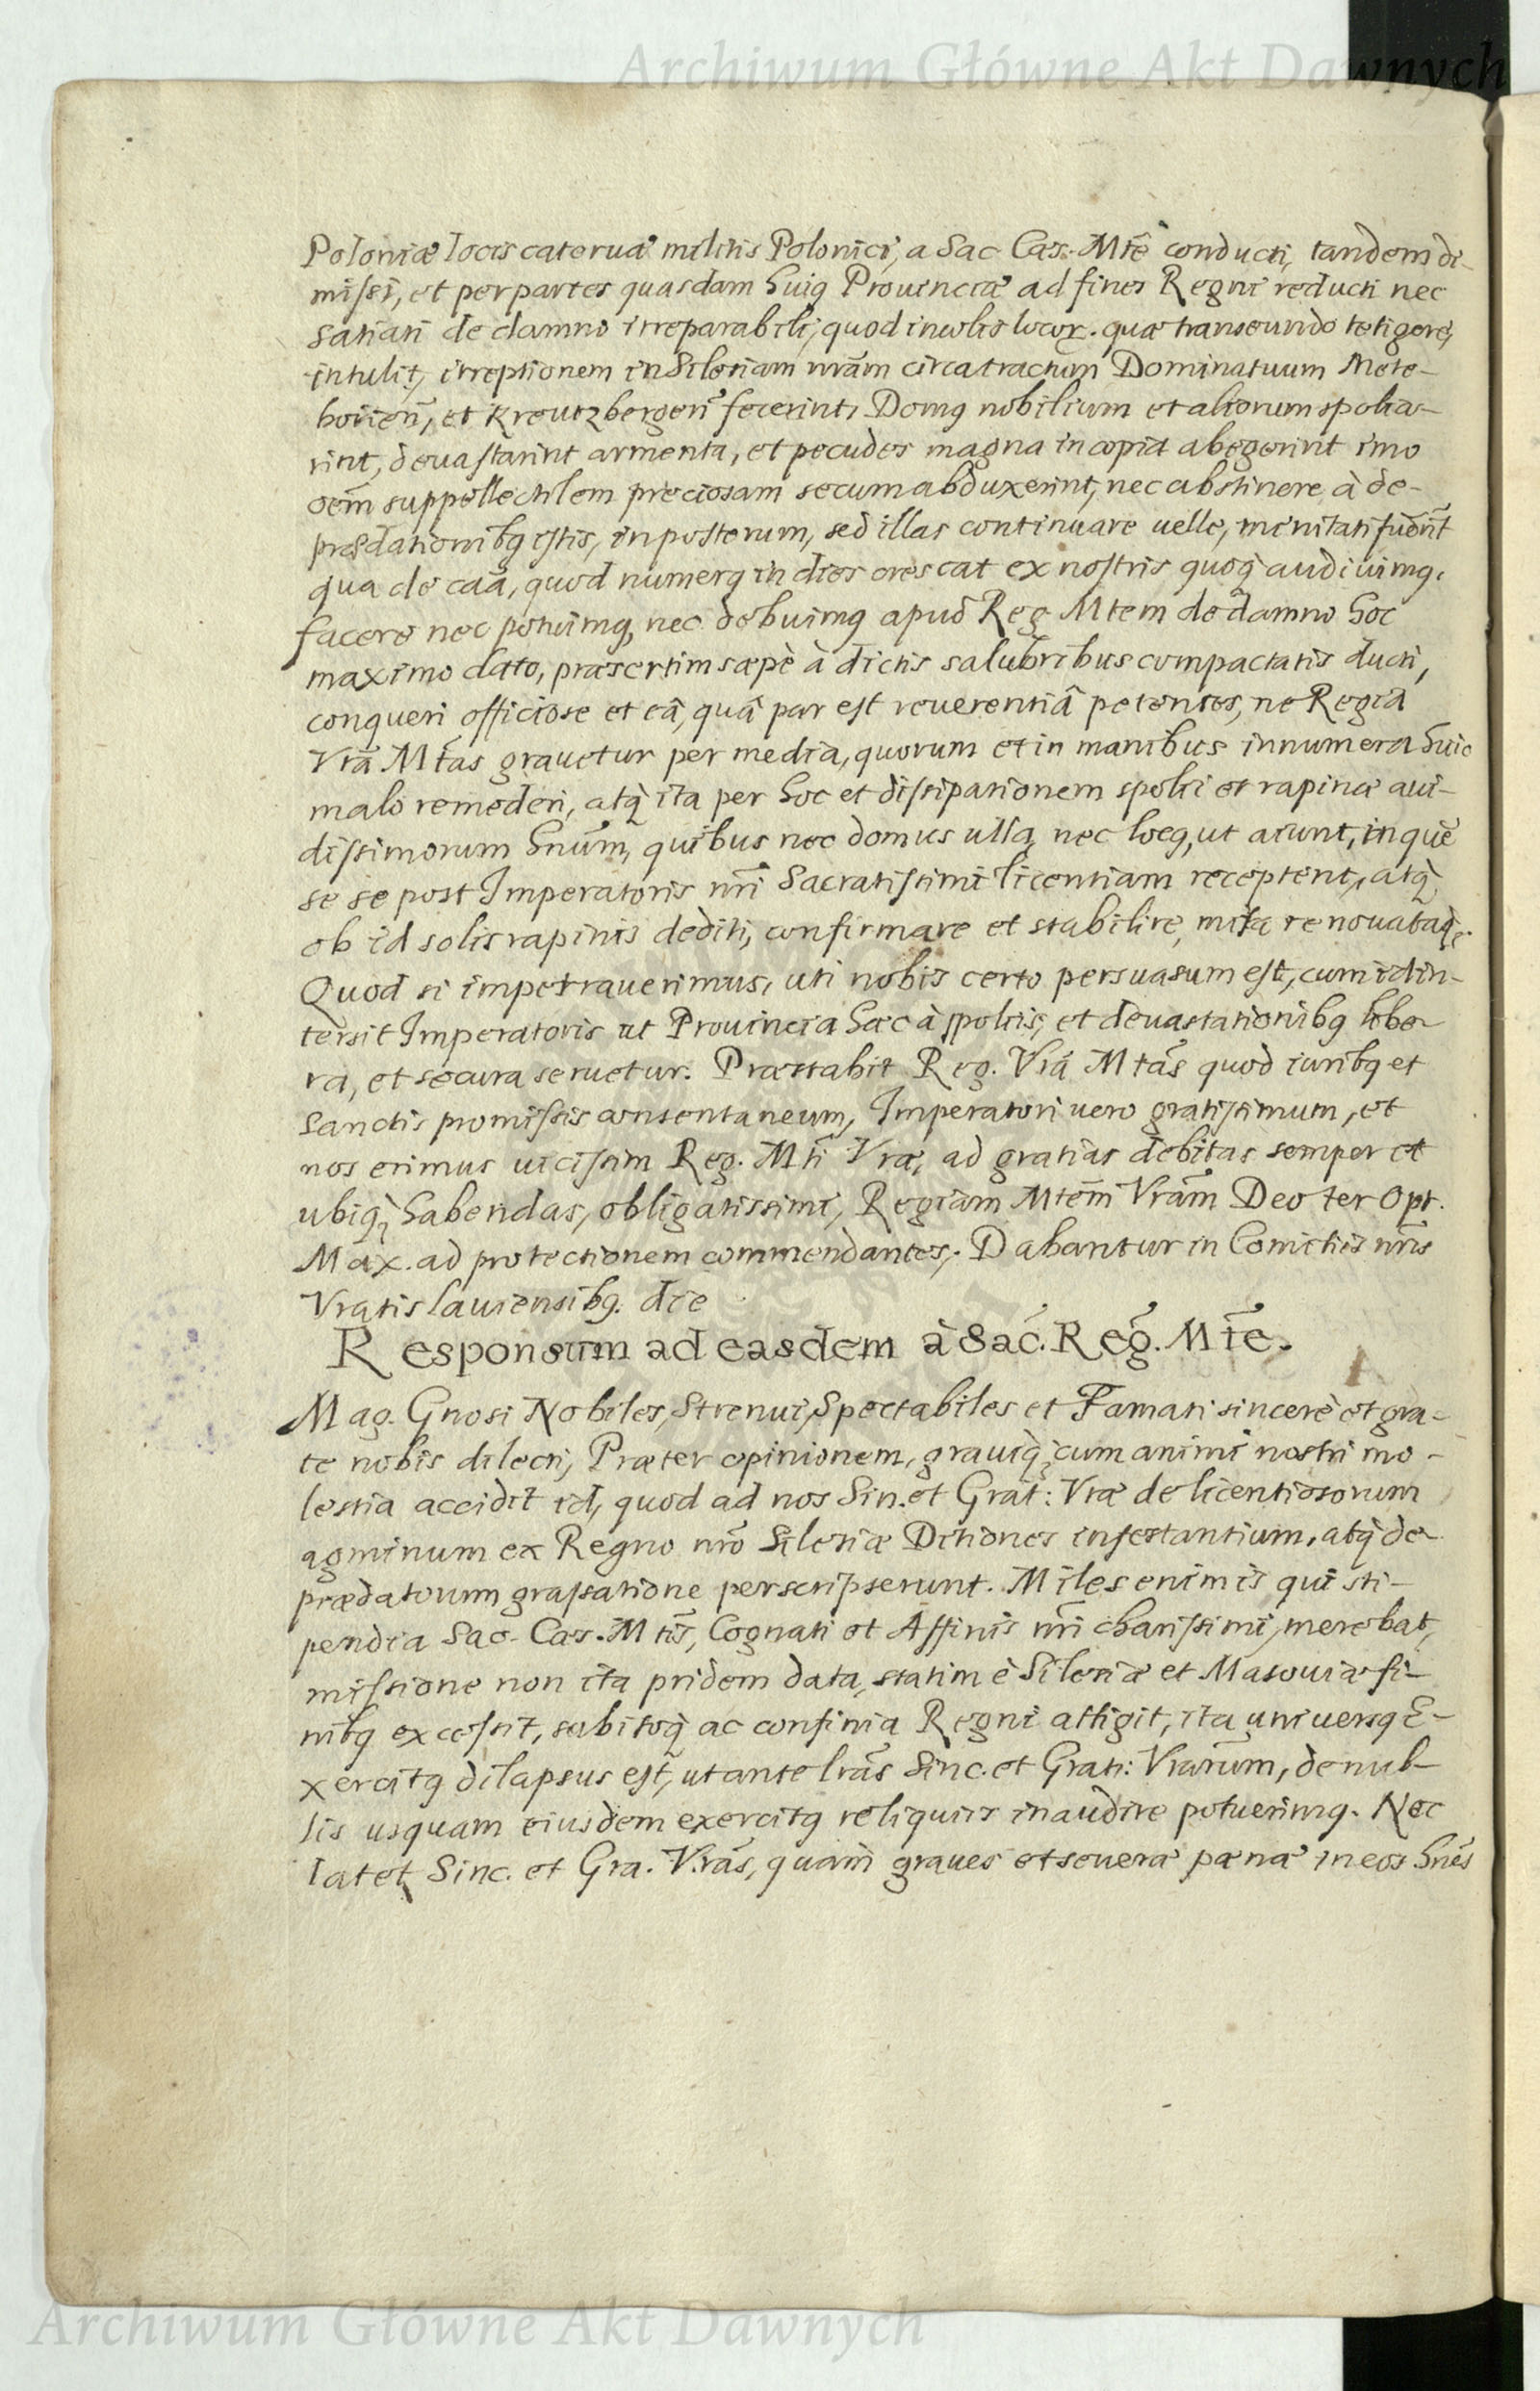 Archiwum Główne Akt Dawnych
Poloniæ locis cateruæ militis Polonici, a Sac Cæs. Mtē conducti, tandem di-
missi, et per partes quasdam huiꝰ Prouinciæ ad fines Regni reducti nec
satiati de damno irreparabili, quod incolis locoꝝ. quæ transeundo tetigere,
intulit, irreptionem in Silesiam nrām circa tractum Dominatuum
et Kreutzbergen̄ fecerint, Domꝰ nobilium et aliorum spolia-
rint, deuastarint armenta, et pecudes magna in copia abegerint imo
oēm suppellectilem preciosam secum abduxerint, nec abstinere à de-
prædationibꝰ istis, in posterum, sed illas continuare uelle, minitati fuēr̄t
qua de caā, quod numerꝰ in dies crescat ex nostris quoq̀ audiuimꝰ.
facere nec potuimꝰ, nec debuimꝰ apud Reg Mtem de damno hoc
maximo dato, præsertim sæpè à dictis salubribus compactatis ducti,
conqueri officiose et eâ, quâ par est reuerentiâ petentes, ne Regia
Vrā Mtās grauetur per media, quorum et in manibus innumera huic
malo remederi, atq̀ ita per hoc et dissipationem spolii et rapinæ aui-
dissimorum hnūm, quibus nec domus ulla, nec locꝰ, ut aiunt, in quē
se se post Imperatoris nrī Sacratissimi licentiam receptent, atq̀
ob id solis rapinis dediti, confirmare et stabilire, renouataq̀.
Quod si impetrauerimus, uti nobis certo persuasum est, cum id in-
tersit Imperatoris ut Prouincia hæc à spoliis, et deuastationibꝰ libe-
ra, et secura seruetur. Præstabit Reg. Vrā Mtās quod iuribꝰ et
sanctis promissis consentaneum, Imperatori uero gratissimum, et
nos erimus uicissim Reg. Mtī Vræ, ad gratias debitas semper et
ubiq̀ habendas, obligatissimi, Regiam Mtēm Vrām Deo ter Opt.
Max. ad protectionem commendantes,. Dabantur in Comitiis nrīs
Vratislauiensibꝰ. die
Responsum ad easdem à Sac̄. Reḡ. Mtē.
Mag. Gnosi Nobiles, Strenui, Spectabiles et Famati sincerè et gra-
te nobis dilecti, Præter opinionem, grauiq̀ cum animi nostri mo-
lestia accidit id, quod ad nos Sin. et Grat: Vræ de licentiosorum
agminum ex Regno nrō Silesiæ Ditiones infestantium, atq̀ de
prædatorum grassatione perscripserunt. Miles enim is qui sti-
pendia Sac. Cæs. Mtīs, Cognati et Affinis nrī charissimi, merebat,
missione non ita pridem data, statim è Silesiæ et Morauiæ fi-
nibꝰ excessit, subitoq̀ ac confinia Regni attigit, ita uniuersꝰ e-
xercitꝰ dilapsus est, ut ante lrās Sinc. et Grati: Vrarūm, de nul-
lis usquam eiusdem exercitꝰ reliquiis inaudire potuerimꝰ. Nec
latet Sinc. et Gra. Vrās, quàm graues et seueræ pœnæ in eos hnēs
Archiwum Główne Akt Dawnych